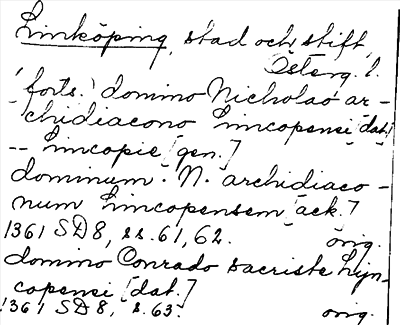 Linköping, stad och stift,
Österg. l.
(forts.) domino Nicholao ar-
chidiacono Lincopensi [dat.]
-- Lincopie [gen.]
dominum . N. archidiaco-
num Lincopensem [ack.]
1361 SD 8, ss. 61, 62. orig.
domino Conrado sacriste Lyn-
copensi [dat.]
1361 SD 8, s. 63. orig.